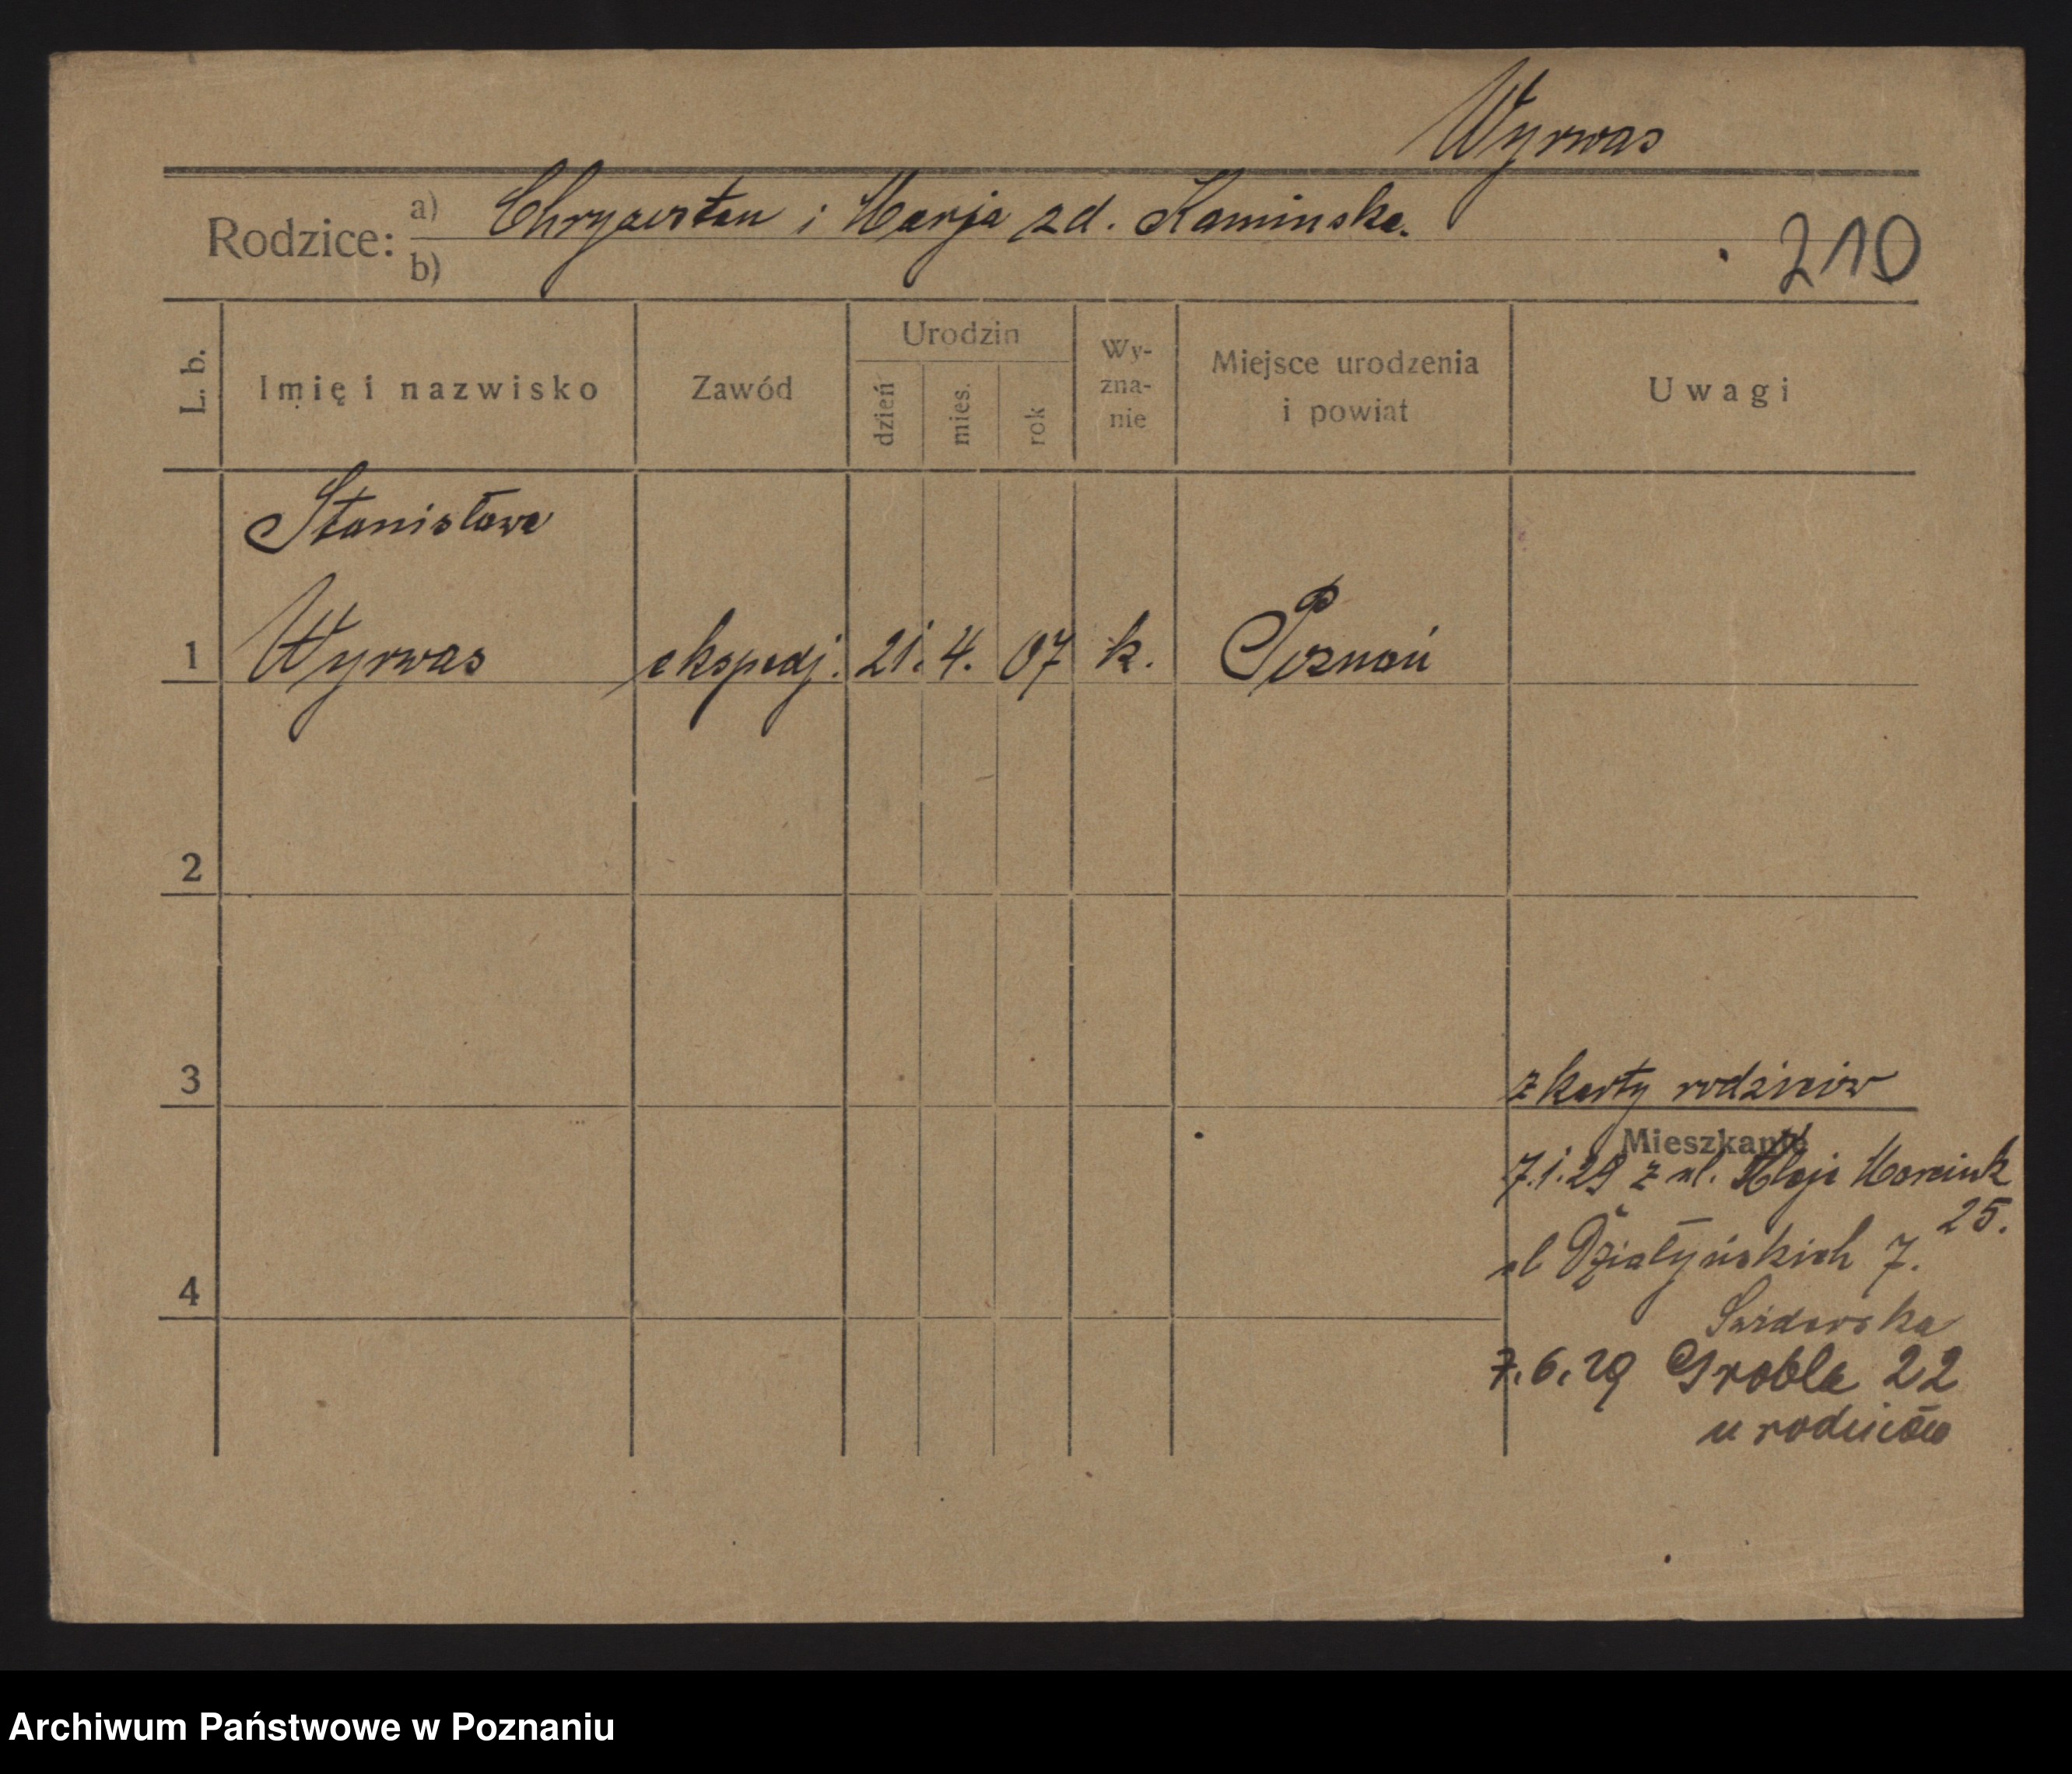 Wyrwas
Rodzice: a) Chryzostom i Marja zd. Kaminska.
b)
210
L. b.
Imię i nazwisko
Zawód
Urodzin
dzień
mies.
rok
Wy-
zna-
nie
Miejsce urodzenia
i powiat
Uwagi
Stanisława
1 Wyrwas ekspedj. 21. 4. 07 k. Poznań
2
3
z karty rodziców
Mieszkanie
7.1.29 z ul. Marcink
25.
4
ul Działyńskich 7.
7.6.29 Grobla 22
u rodziców
Archiwum Państwowe w Poznaniu